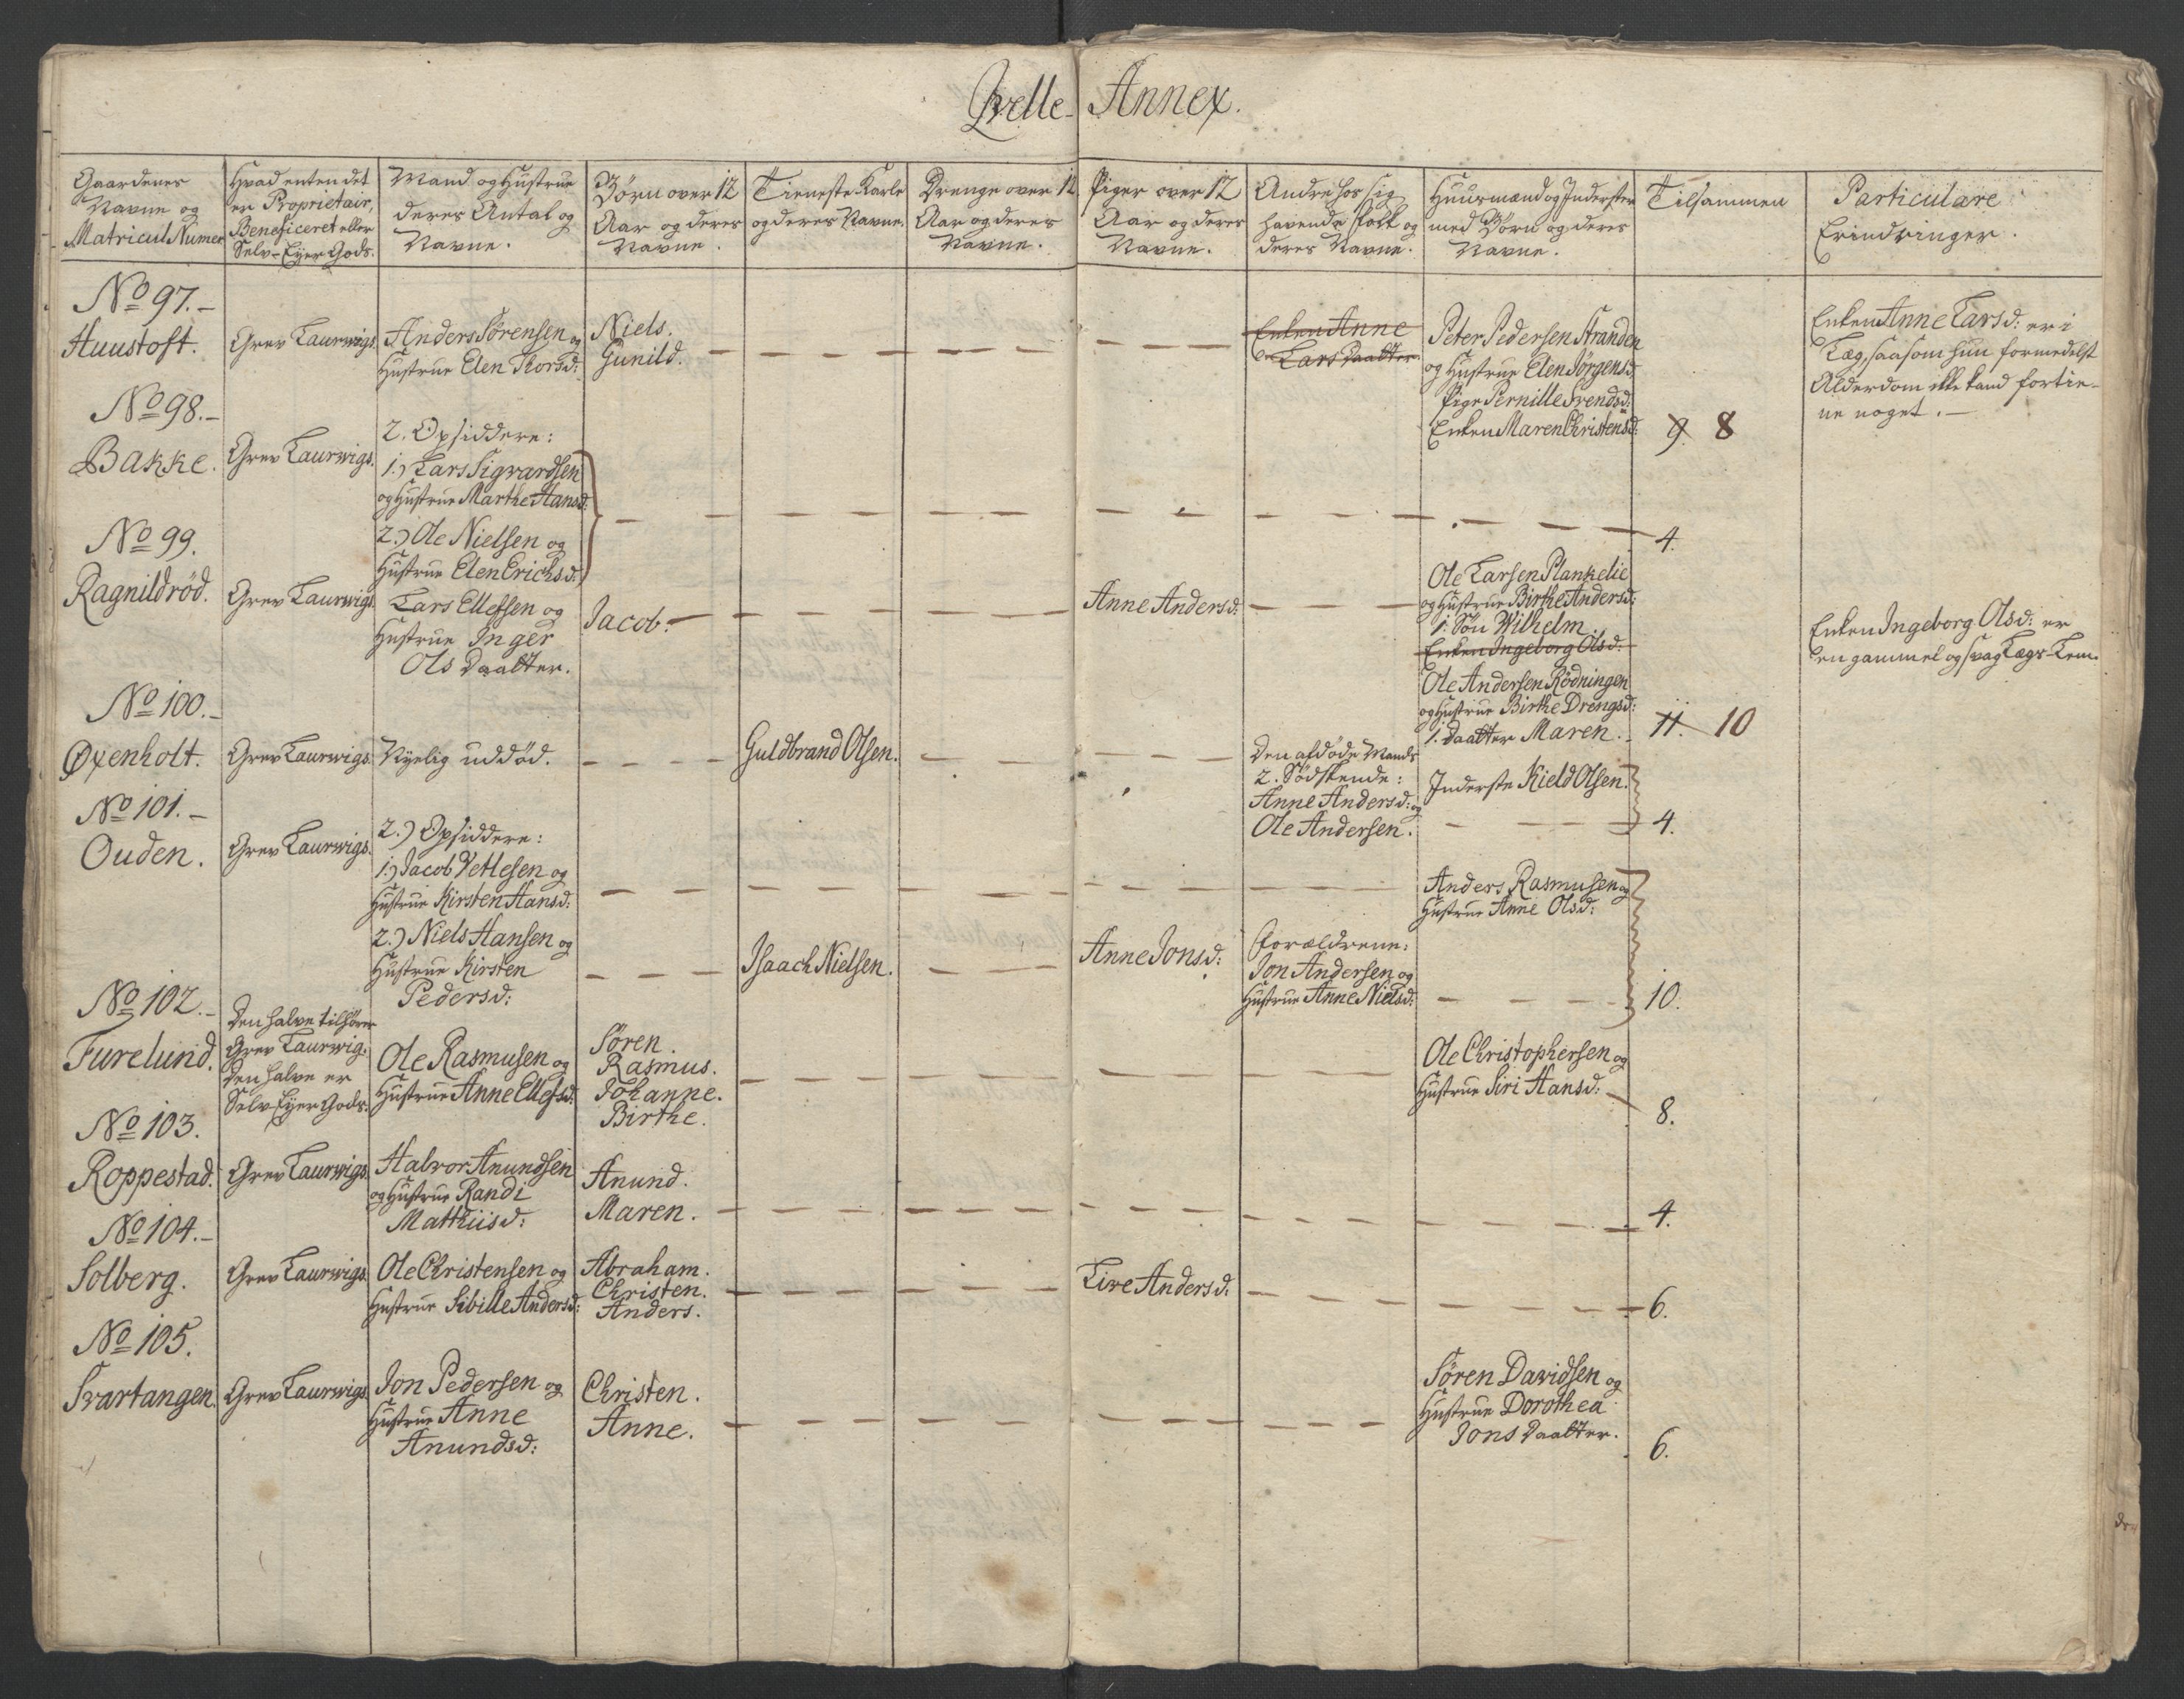 Qvelle Annex.
Gaardenes
Navne og
Matricul Numer
Hvad enten det
er Proprietair,
Beneficeret eller
Selv-Eyer Gods.
Mand og Hustrue
deres Antal og
Navne.
Börn over 12
Aar og deres
Navne.
Tieneste Karle
og deres Navne.
Drenge over 12
Aar og deres
Navne.
Piger over 12
Aar og deres
Navne.
Andre hos sig
havende Folk og
deres Navne.
Huusmænd og Inderster
med Börn og deres
Navne.
Tilsammen
Particulære
Erindringer.
No 97.
Huustoft.
Grev Laurwigs.
Anders Sörensen og
Hustrue Elen Thorsd:
Niels.
Gunild.
Enken Anne
Lars Daatter.
Peter Pedersen Stranden
og Hustrue Elen Jörgensd:
Pige Pernille Svendsd:
Enken Maren Christensd:
9. 8
Enken Anne Larsd: er i
Læg, saasom hun formedelst
Alderdom ikke kand fortie-
ne noget.
No 98.
Bakke.
Grev Laurwigs.
2. Opsiddere:
1.) Lars Sigvardsen
og Hustrue Marthe Hansd:
2.) Ole Nielsen og
Hustrue Elen Erichsd:
4.
No 99.
Ragnildröd.
Grev Laurwigs.
Lars Ellefsen og
Hustrue Inger
Ols Daatter.
Jacob.
Anne Andersd:
Ole Larsen Plankelie
og Hustrue Birthe Andersd:
1. Sön Wilhelm.
Enken Ingeborg Olsd:
Ole Andersen Rödningen
og Hustrue Birthe Drengsd:
1. Daatter Maren.
11. 10
Enken Ingeborg Olsd: er
en gammel og svag Lægs-Lem.
No 100.
Øxenholt.
Grev Laurwigs.
Nyelig uddöd.
Guldbrand Olsen.
Den afdöde Mands
2. Södskende:
Anne Andersd: og
Ole Andersen.
Inderste Kield Olsen.
4.
No 101.
Ouden.
Grev Laurwigs.
2.) Opsiddere:
1.) Jacob Vetlesen og
Hustrue Kirsten Hansd:
Anders Rasmusen og
Hustrue Anne Olsd:
2.) Niels Hansen og
Hustrue Kirsten
Pedersd:
Isaach Nielsen.
Anne Jonsd:
Forældrene:
Jon Andersen og
Hustrue Anne Nielsd:
10.
No 102.
Furelund.
Den halve tilhörer
Grev Laurwig.
Den halve er
Selv-Eyer Gods.
Ole Rasmusen og
Hustrue Anne Ellefsd:
Sören.
Rasmus.
Johanne.
Birthe.
Ole Christophersen og
Hustrue Siri Hansd:
8.
No 103.
Roppestad.
Grev Laurwigs.
Halvor Anundsen
og Hustrue Randi
Mathiisd:
Anund.
Maren.
4.
No 104.
Solberg.
Grev Laurwigs.
Ole Christensen og
Hustrue Sibille Andersd:
Abraham.
Christen.
Anders.
Live Andersd:
6.
No 105.
Svartangen.
Grev Laurwigs.
Jon Pedersen og
Hustrue Anne
Anundsd:
Christen.
Anne.
Sören Davidsen og
Hustrue Dorothea
Jons Daatter.
6.